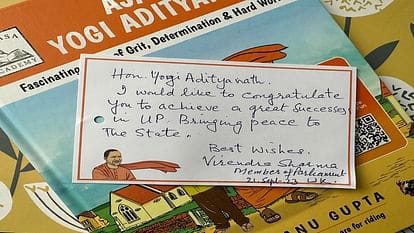 ASA
ACADEMY
YOGI ADITYA
Fascinating
of Grit, Determination & Hard Wor
Hon. Yogi Adityanath.
I would like to congratulate
you to achieve a great successes
in UP. Bringing peace to
The State.
Best Wishes.
Virendra Sharma
Member of Parliament
21. Sept. 23 U.K.
NU GUPTA
are for riding